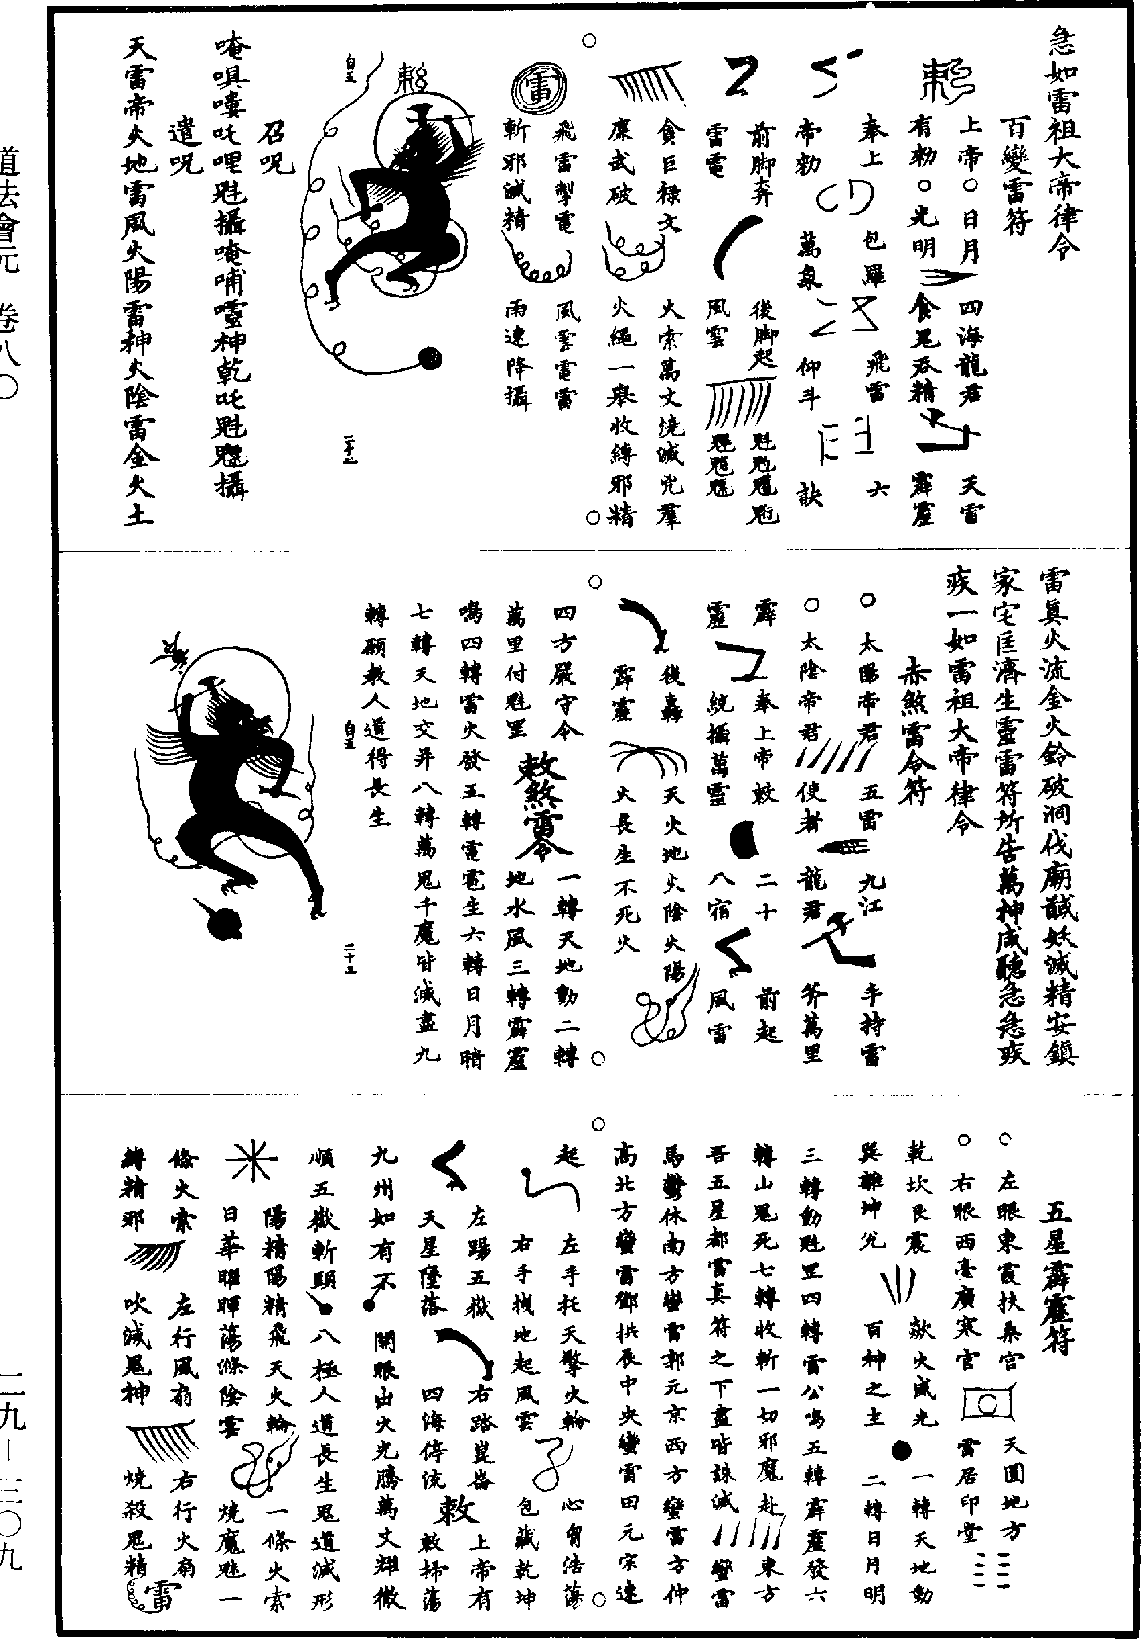 急如雷祖大帝律令
百變雷符
上帝○日月
有勅○光明
四海龍君
食鬼吞精
天雷
霹靂
奉上
帝勅
包羅
萬象
飛雷
仰斗
六
訣
前脚奔
雷電
後脚起
風雲
貪巨祿文
廉武破
火索萬丈燒滅兇群
火繩一舉收縛邪精
飛雷掣電
斬邪滅精
風雲雷電
雨速降攝
雷
白玉
二十二
召呪
遣呪
天雷帝火地雷風火陽雷神火陰雷金火土
雷真火流金火鈴破洞伐廟馘妖滅精安鎮
家宅匡濟生靈雷符所告萬神咸聽急急疾
疾一如雷祖大帝律令
赤煞雷令符
○太陽帝君
○太陰帝君
五雷
使者
九江
龍君
手持雷
斧萬里
霹
靂
奉上帝敕
統攝萬靈
二十
八宿
前起
風雷
後轟
霹靂
天火地火陰火陽
火長生不死火
四方嚴守令
萬里付魁罡
敕煞雷令
一轉天地動二轉
地水風三轉霹靂
鳴四轉雷火發五轉電雹生六轉日月暗
七轉天地交昇八轉萬鬼千魔皆滅盡九
轉願教人道得長生
白玉
二十三
五星霹靂符
○左眼東霞扶桑宮
○右眼西臺廣寒宮
天圓地方
雷居印堂
乾坎艮震
巽離坤兌
歘火威光
百神之主
一轉天地動
二轉日月明
三轉動魁罡四轉雷公鳴五轉霹靂發六
轉山鬼死七轉收斬一切邪魔赴
東方
吾五星都雷真符之下盡皆誅滅
蠻雷
馬鬱休南方蠻雷郭元京西方蠻雷方仲
高北方蠻雷鄧拱辰中央蠻雷田元宗速
起
左手托天擎火輪
右手拽地起風雲
心胸浩蕩
包藏乾坤
左踢五嶽
天星墮落
右踏崑崙
四海停流
敕
上帝有
敕掃蕩
九州如有不
開眼由火光騰萬丈輝微
順五嶽斬顯
八極人道長生鬼道滅形
陽精陽精飛天火輪
日華曜暉蕩滌陰雲
一條火索
燒魔魅一
條火索
縛精邪
左行風扇
吹滅鬼神
右行火扇
燒殺鬼精
雷
道法會元 卷八○
二九—三○九